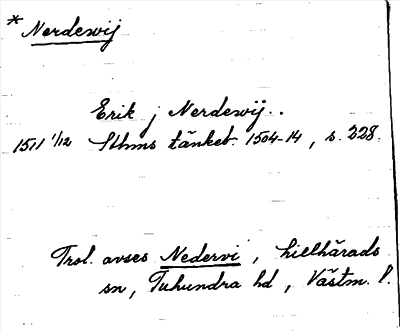 * Nerdewij
Erik j Nerdewij..
1511 1/12 Sthms tänkeb. 1504-14, s. 228.
Trol. avses Nedervi, Lillhärads
sn, Tuhundra hd, Västm. l.